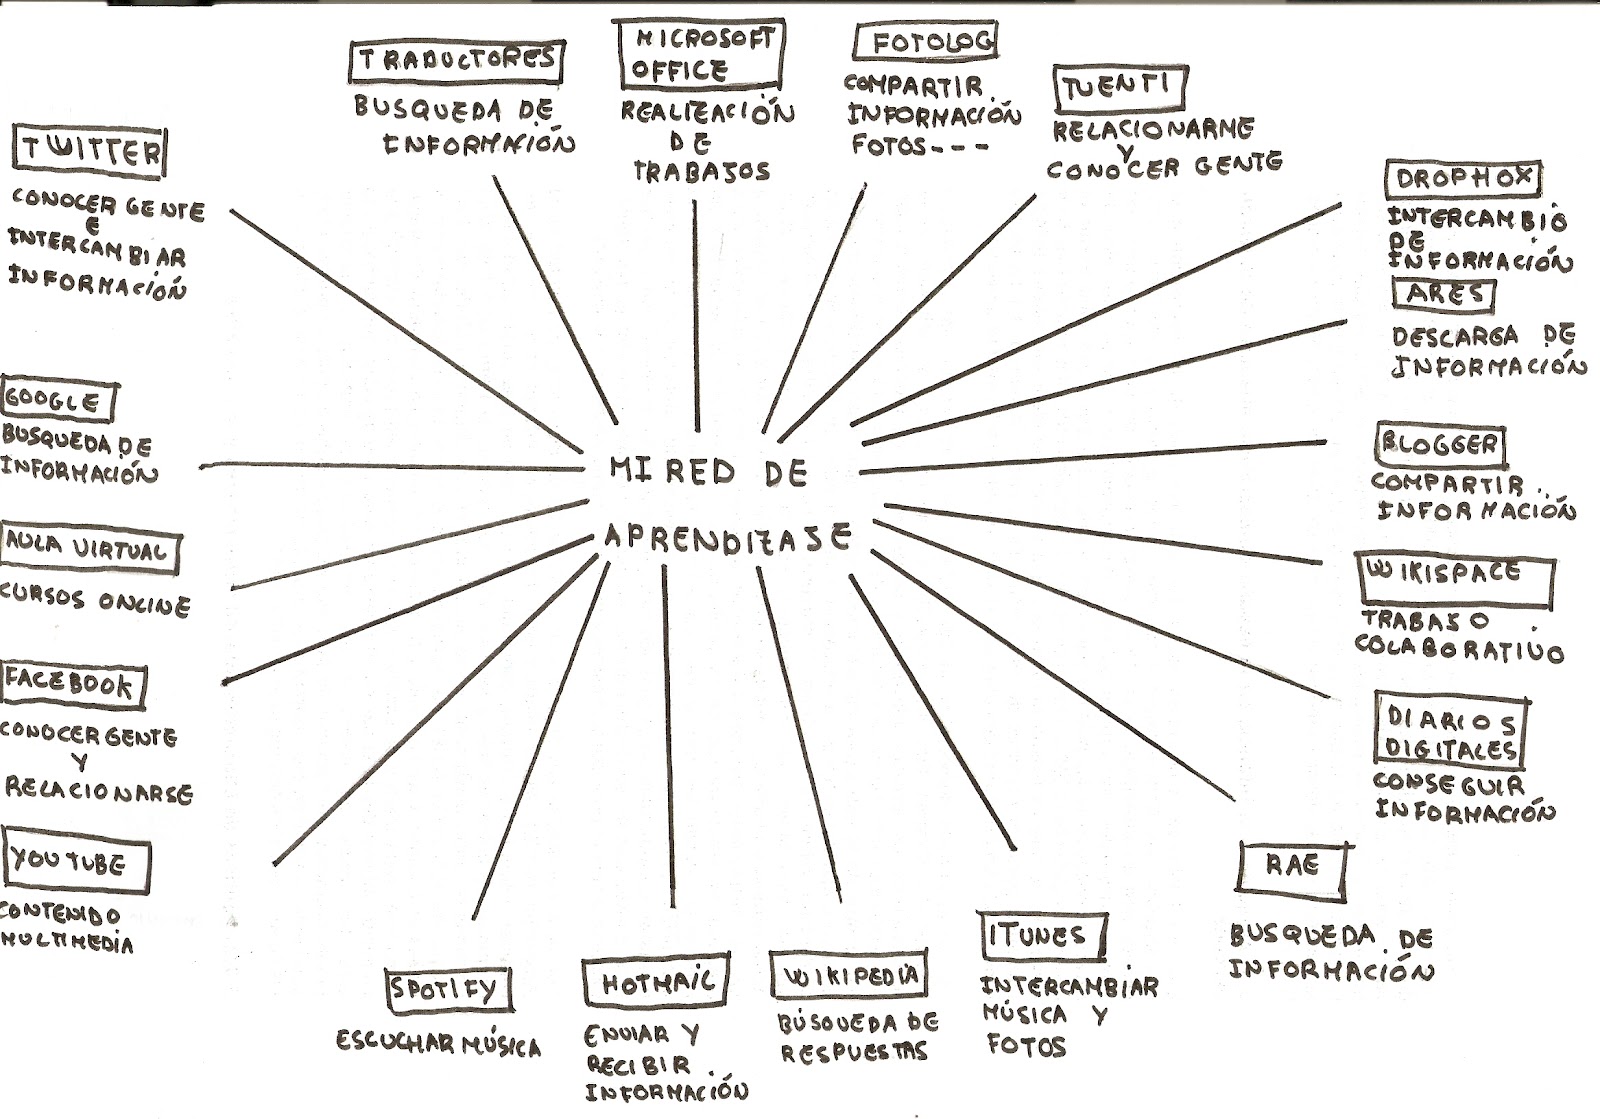 TRADUCTORES
BUSQUEDA DE
INFORMACIÓN
MICROSOFT
OFFICE
REALIZACIÓN
DE
TRABAJOS
FOTOLOG
COMPARTIR
INFORMACIÓN
FOTOS---
TUENTI
RELACIONARME
Y
CONOCER GENTE
TWITTER
CONOCER GENTE
E
INTERCAMBIAR
INFORMACIÓN
DROPHOX
INTERCAMBIO
DE
INFORMACIÓN
ARES
DESCARGA DE
INFORMACIÓN
GOOGLE
BUSQUEDA DE
INFORMACIÓN
MI RED DE
APRENDIZAJE
BLOGGER
COMPARTIR
INFORMACIÓN
AULA VIRTUAL
CURSOS ONLINE
WIKISPACE
TRABAJO
COLABORATIVO
FACEBOOK
CONOCER GENTE
Y
RELACIONARSE
DIARIOS
DIGITALES
CONSEGUIR
INFORMACIÓN
YOUTUBE
CONTENIDO
MULTIMEDIA
SPOTIFY
ESCUCHAR MÚSICA
HOTMAIL
ENVIAR Y
RECIBIR
INFORMACIÓN
WIKIPEDIA
BÚSQUEDA DE
RESPUESTAS
ITUNES
INTERCAMBIAR
MÚSICA Y
FOTOS
RAE
BUSQUEDA DE
INFORMACIÓN